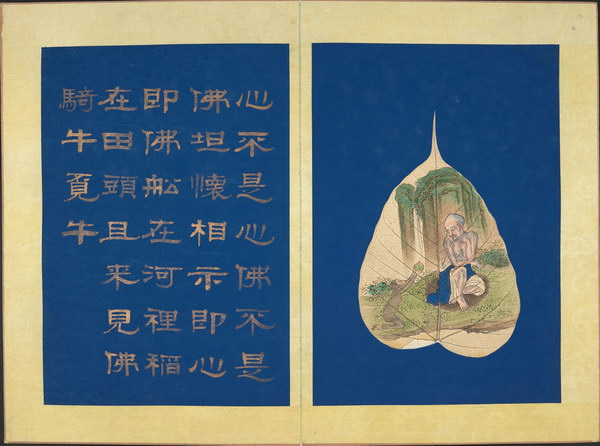 心不是心佛不是
佛坦懷相示即心
即佛船在河裡稻
在田頭且來見佛
騎牛覓牛